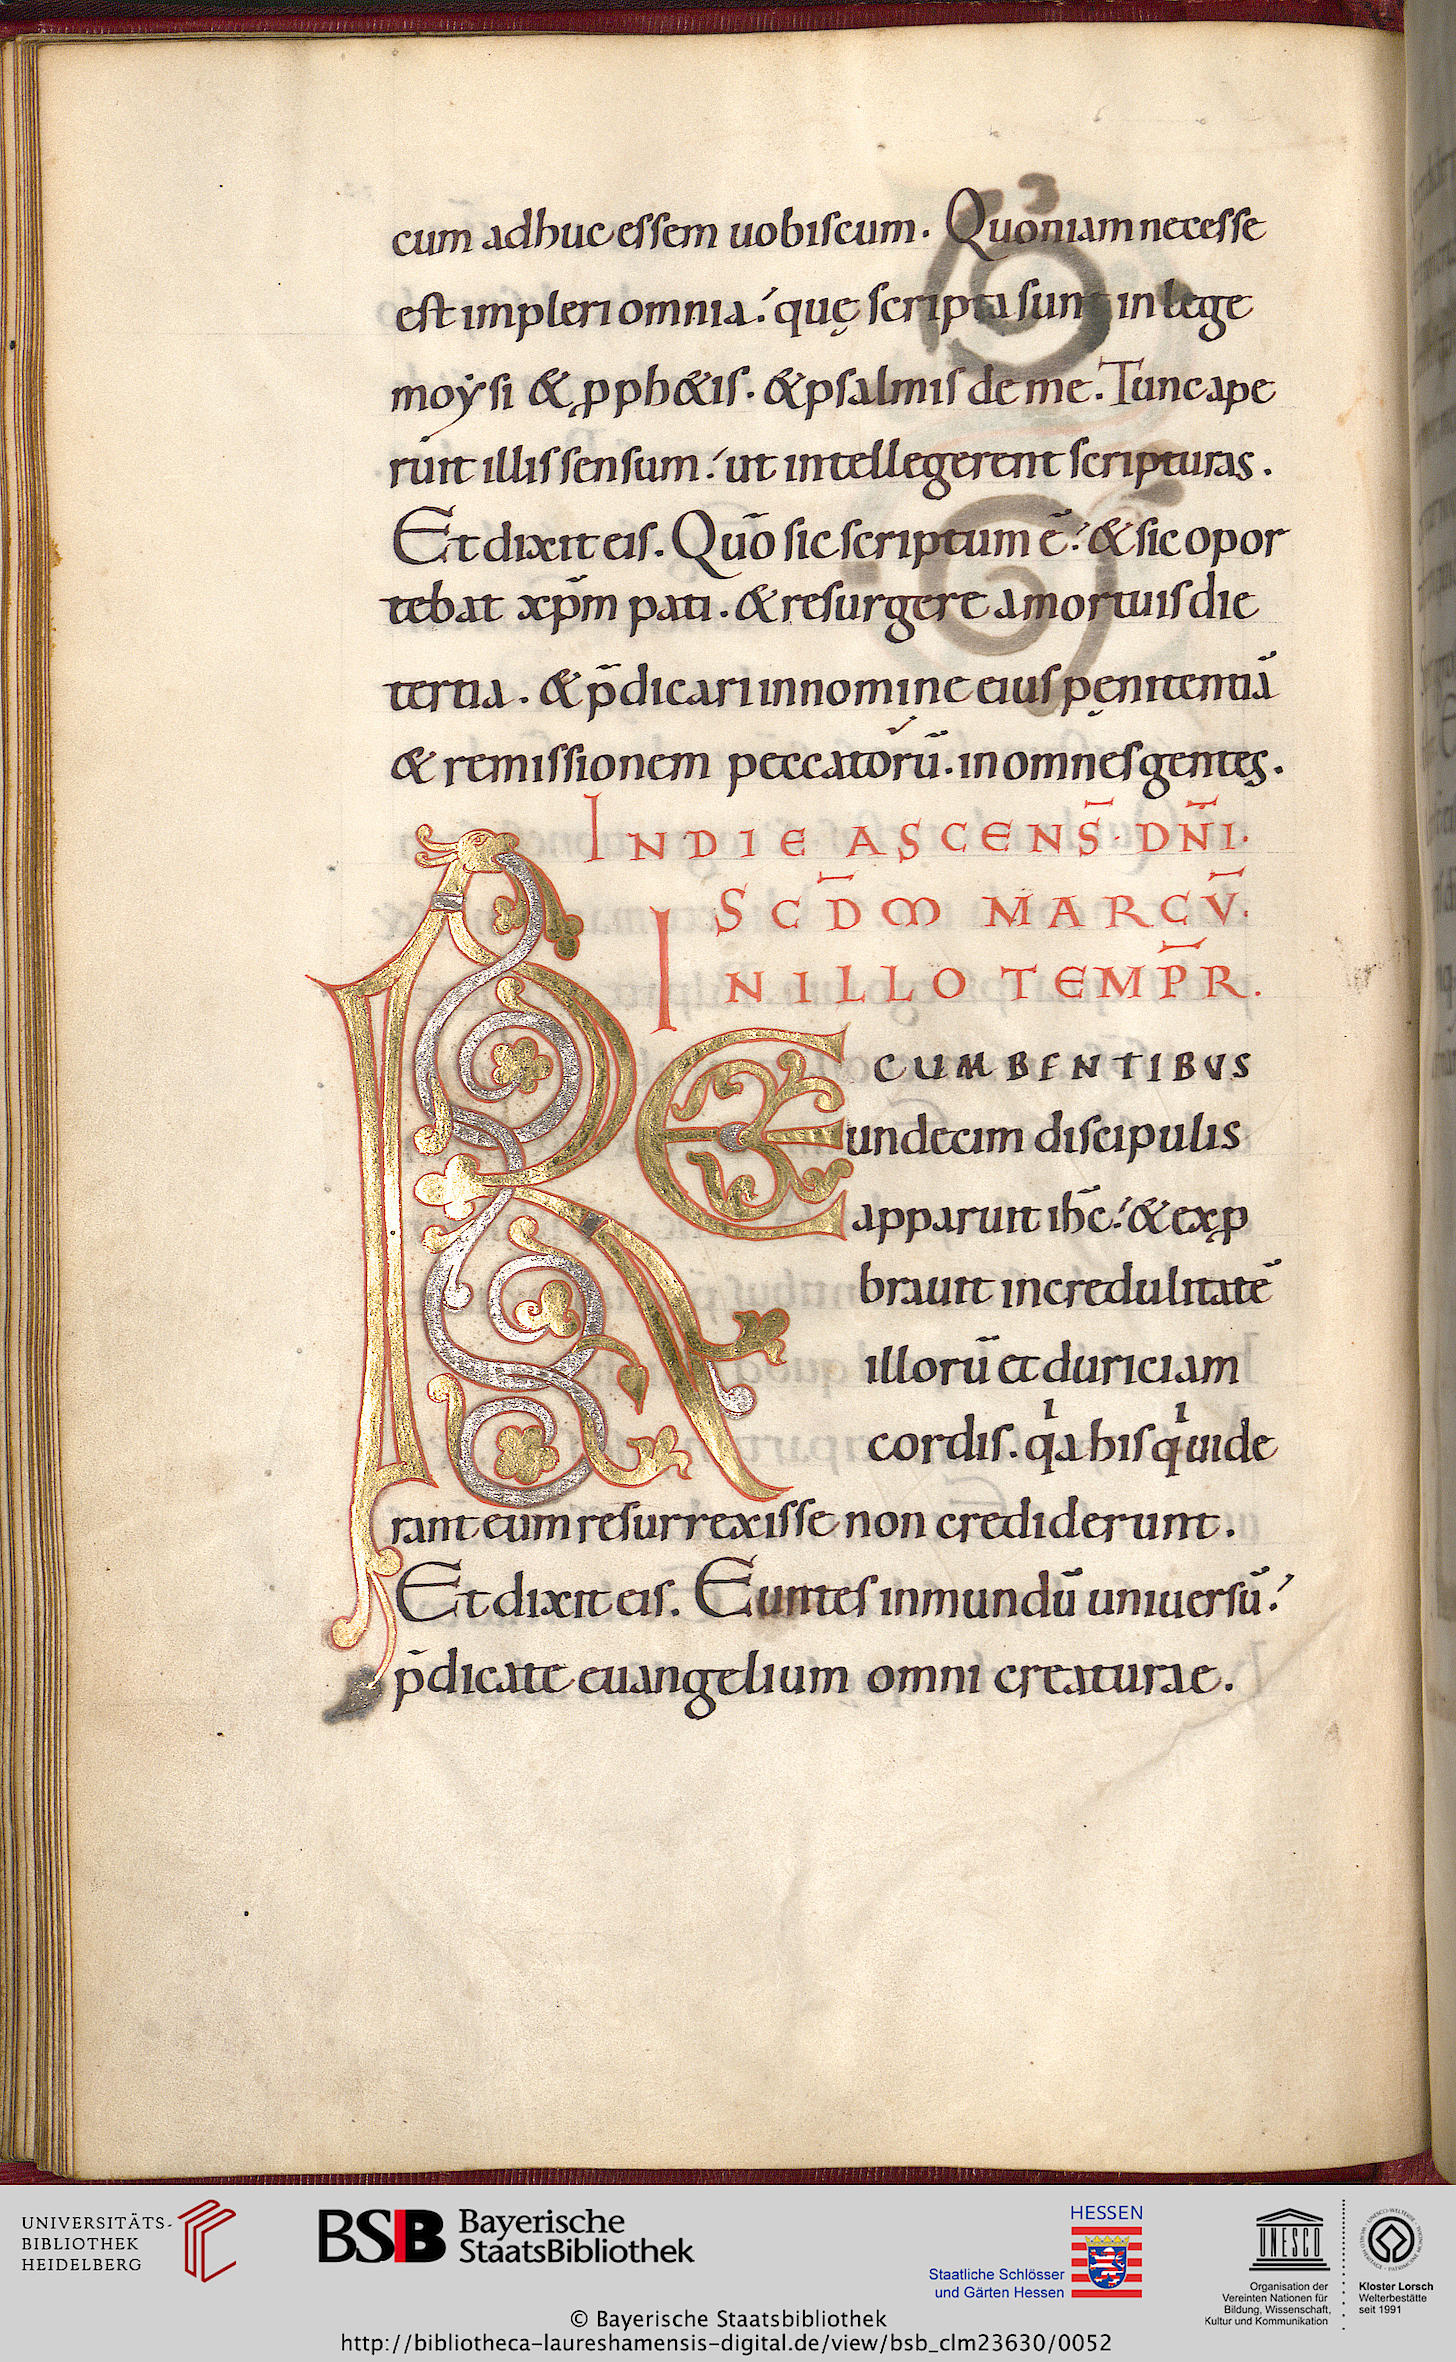 cum adhuc essem uobiscum. Quōniam necesse
est impleri omnia. quę scripta sunt in lege
moẏsi & ꝓph&is. & psalmis de me. Tunc ape
ruit illis sensum. ut intellegerent scripturas.
Et dixit eis. Quō sic scriptum ē. & sic opor
tebat xp̄m pati. & resurgere a mortuis die
tertia. & p̄dicari in nomine eius pęnitentiā
& remissionem peccatorū. in omnes gentes.
IN DIE ASCENS̄. DN̄I.
SCD̄M MARCV̄.
IN ILLO TEMPR̄.
RECUMBENTIBVS
undecim discipulis
apparuit ih̄c. & exꝓ
brauit incredulitatē
illorū et duriciam
cordis. qͥa his qͥ uide
rant eum resurrexisse non crediderunt.
Et dixit eis. Euntes in mundū uniuersū.
p̄dicate euangelium omni creaturae.
UNIVERSITÄTS-
BIBLIOTHEK
HEIDELBERG
BSB Bayerische
StaatsBibliothek
HESSEN
Staatliche Schlösser
und Gärten Hessen
UNESCO
Organisation der
Vereinten Nationen für
Bildung, Wissenschaft,
Kultur und Kommunikation
Kloster Lorsch
Welterbestätte
seit 1991
© Bayerische Staatsbibliothek
http://bibliotheca-laureshamensis-digital.de/view/bsb_clm23630/0052